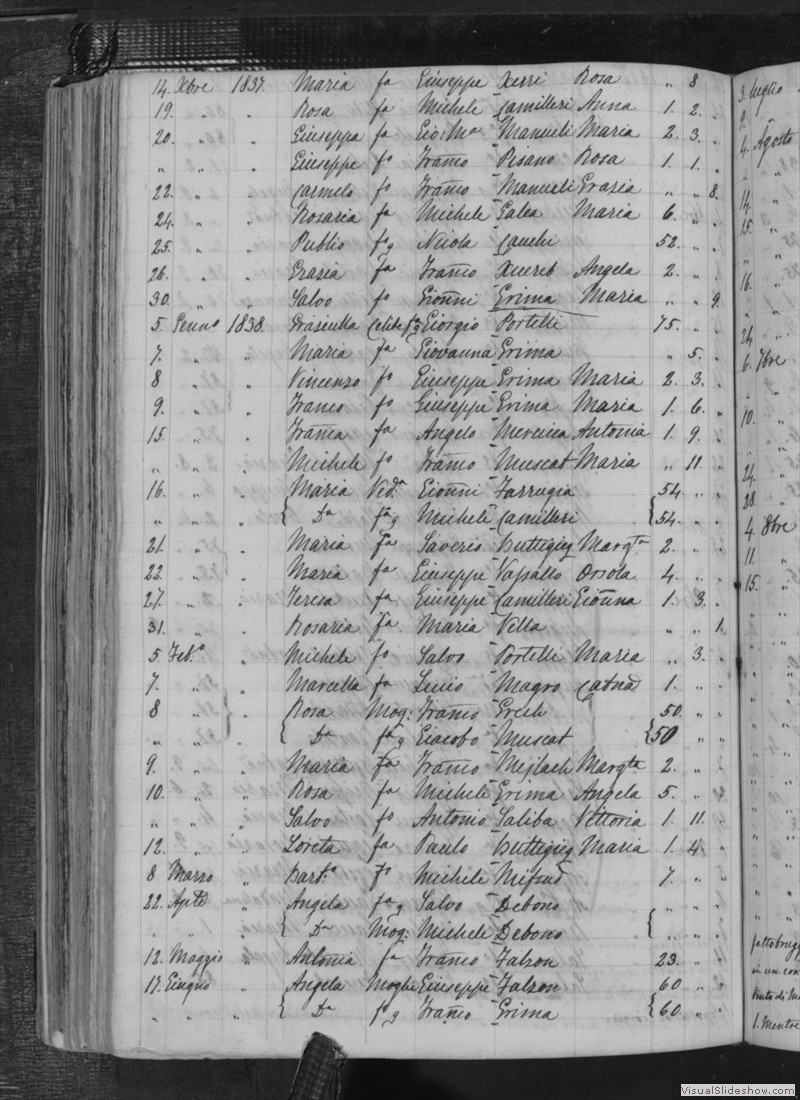 14. Xbre 1837. Maria fa Giuseppe Xerri Rosa " 8 "
19. " " Rosa fa Michele Camilleri Anna 1. 2. "
20. " " Giuseppa fa Gio: Ma Manueli Maria 2. 3. "
" " " Giuseppe fo Franco Pisano Rosa 1. 1. "
22. " " Carmelo fo Franco Manueli Grazia " " 8.
24. " " Rosaria fa Michele Galea Maria 6. " "
25. " " Publio fo g Nicola Cauchi 52. " "
26. " " Grazia fa Franco Xuereb Angela 2. " "
30. " " Salvo fo Gionni Grima Maria " " 9.
5. Genno 1838. celibe fa g Giorgio Portelli 75. " "
7. " " Maria fa Giovanna Grima " 5. "
8 " " Vincenzo fo Giuseppe Grima Maria 2. 3. "
9. " " Franco fo Giuseppe Grima Maria 1. 6. "
15. " " Franca fa Angelo Mercieca Antonia 1. 9. "
" " " Michele fo Franco Muscat Maria " 11. "
16. " " Maria Veda Gionni Farrugia 54. " "
" " " { Da fa g Michele Camilleri {54. " "
21. " " Maria fa Saverio Buttigieg Margta 2. " "
22. " " Maria fa Giuseppe Vassallo Orsola 4. " "
27. " " Teresa fa Giuseppe Camilleri Gionna 1. 3. "
31. " " Rosaria fa Maria Vella " " 1.
5 Febo " Michele fo Salvo Portelli Maria " 3. "
7. " " Marcella fa Lucio Magro Catna 1. " "
8 " " Rosa Mog: Franco Grech 50. " "
" " " { Da fa g Giacobo Muscat {50 " "
9. " " Maria fa Franco Mejlach Margta 2. " "
10. " " Rosa fa Michele Grima Angela 5. " "
" " " Salvo fo Antonio Saliba Vittoria 1. 11. "
12. " " Loreta fa Paulo Buttigieg Maria 1. 4. "
8 Marzo " Barto fo Michele Mifsud 7. " "
22. Aple " Angela fa g Salvo Debono
" " " { Da Mog: Michele Debono { " " "
12. Maggio " Antonia fa Franco Falzon 23. " "
17. Giugno " Angela Moglie Giuseppe Falzon 60 " "
" " " { Da fa g Franco Grima {60. " "
3. luglio
9. "
4. Agosto
14.
15.
16.
24.
6. 7bre
10.
24.
28.
4. 8bre
11.
15.
in un
1. Mentre
VisualSlideshow.com